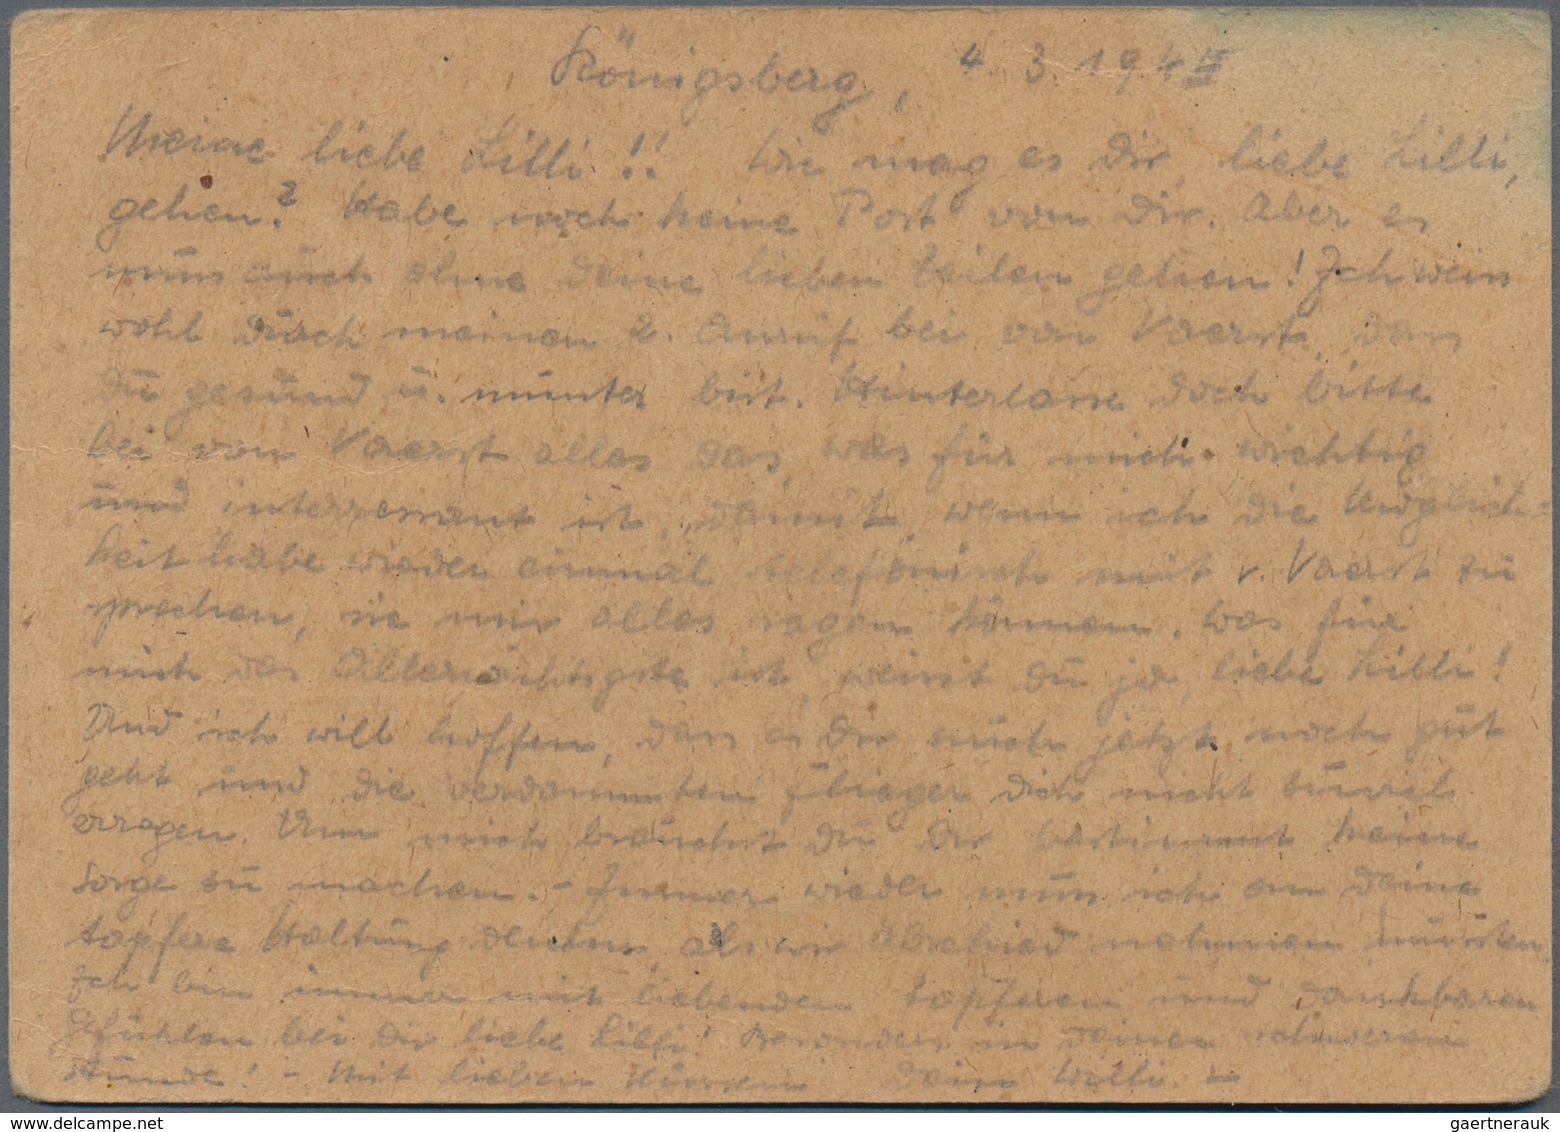 Königsberg, 4. 3. 194
Meine liebe Lilli!! Wie mag es Dir, liebe Lilli,
gehen? Habe noch keine Post von Dir. Aber es
muss auch ohne Deine lieben Zeilen gehen! Ich weiss
wohl durch meinen 2. Anruf bei von Vaerst, dass
Du gesund u. munter bist. Hinterlasse doch bitte
bei von Vaerst alles das, was für mich wichtig
und interressant ist, damit, wenn ich die Möglich=
keit habe wieder einmal telefonisch mit v. Vaerst zu
sprechen, sie mir alles sagen können. Was für
mich das Allerwichtigste ist, weisst Du ja, liebe Lilli!
Und ich will hoffen, dass es Dir auch jetzt noch gut
geht und die verdammten Flieger Dich nicht zuviel
erregen. Um mich brauchst Du Dir bestimmt keine
Sorge zu machen. - Immer wieder muss ich an Deine
tapfere Haltung denken, als wir Abschied nehmen mussten.
Ich bin immer mit liebenden tapferen und dankbaren
Gefühlen bei Dir liebe Lilli! Besonders in Deiner schweren
Stunde! - Mit lieben Küssen Dein Willi. -
gaertnerauk